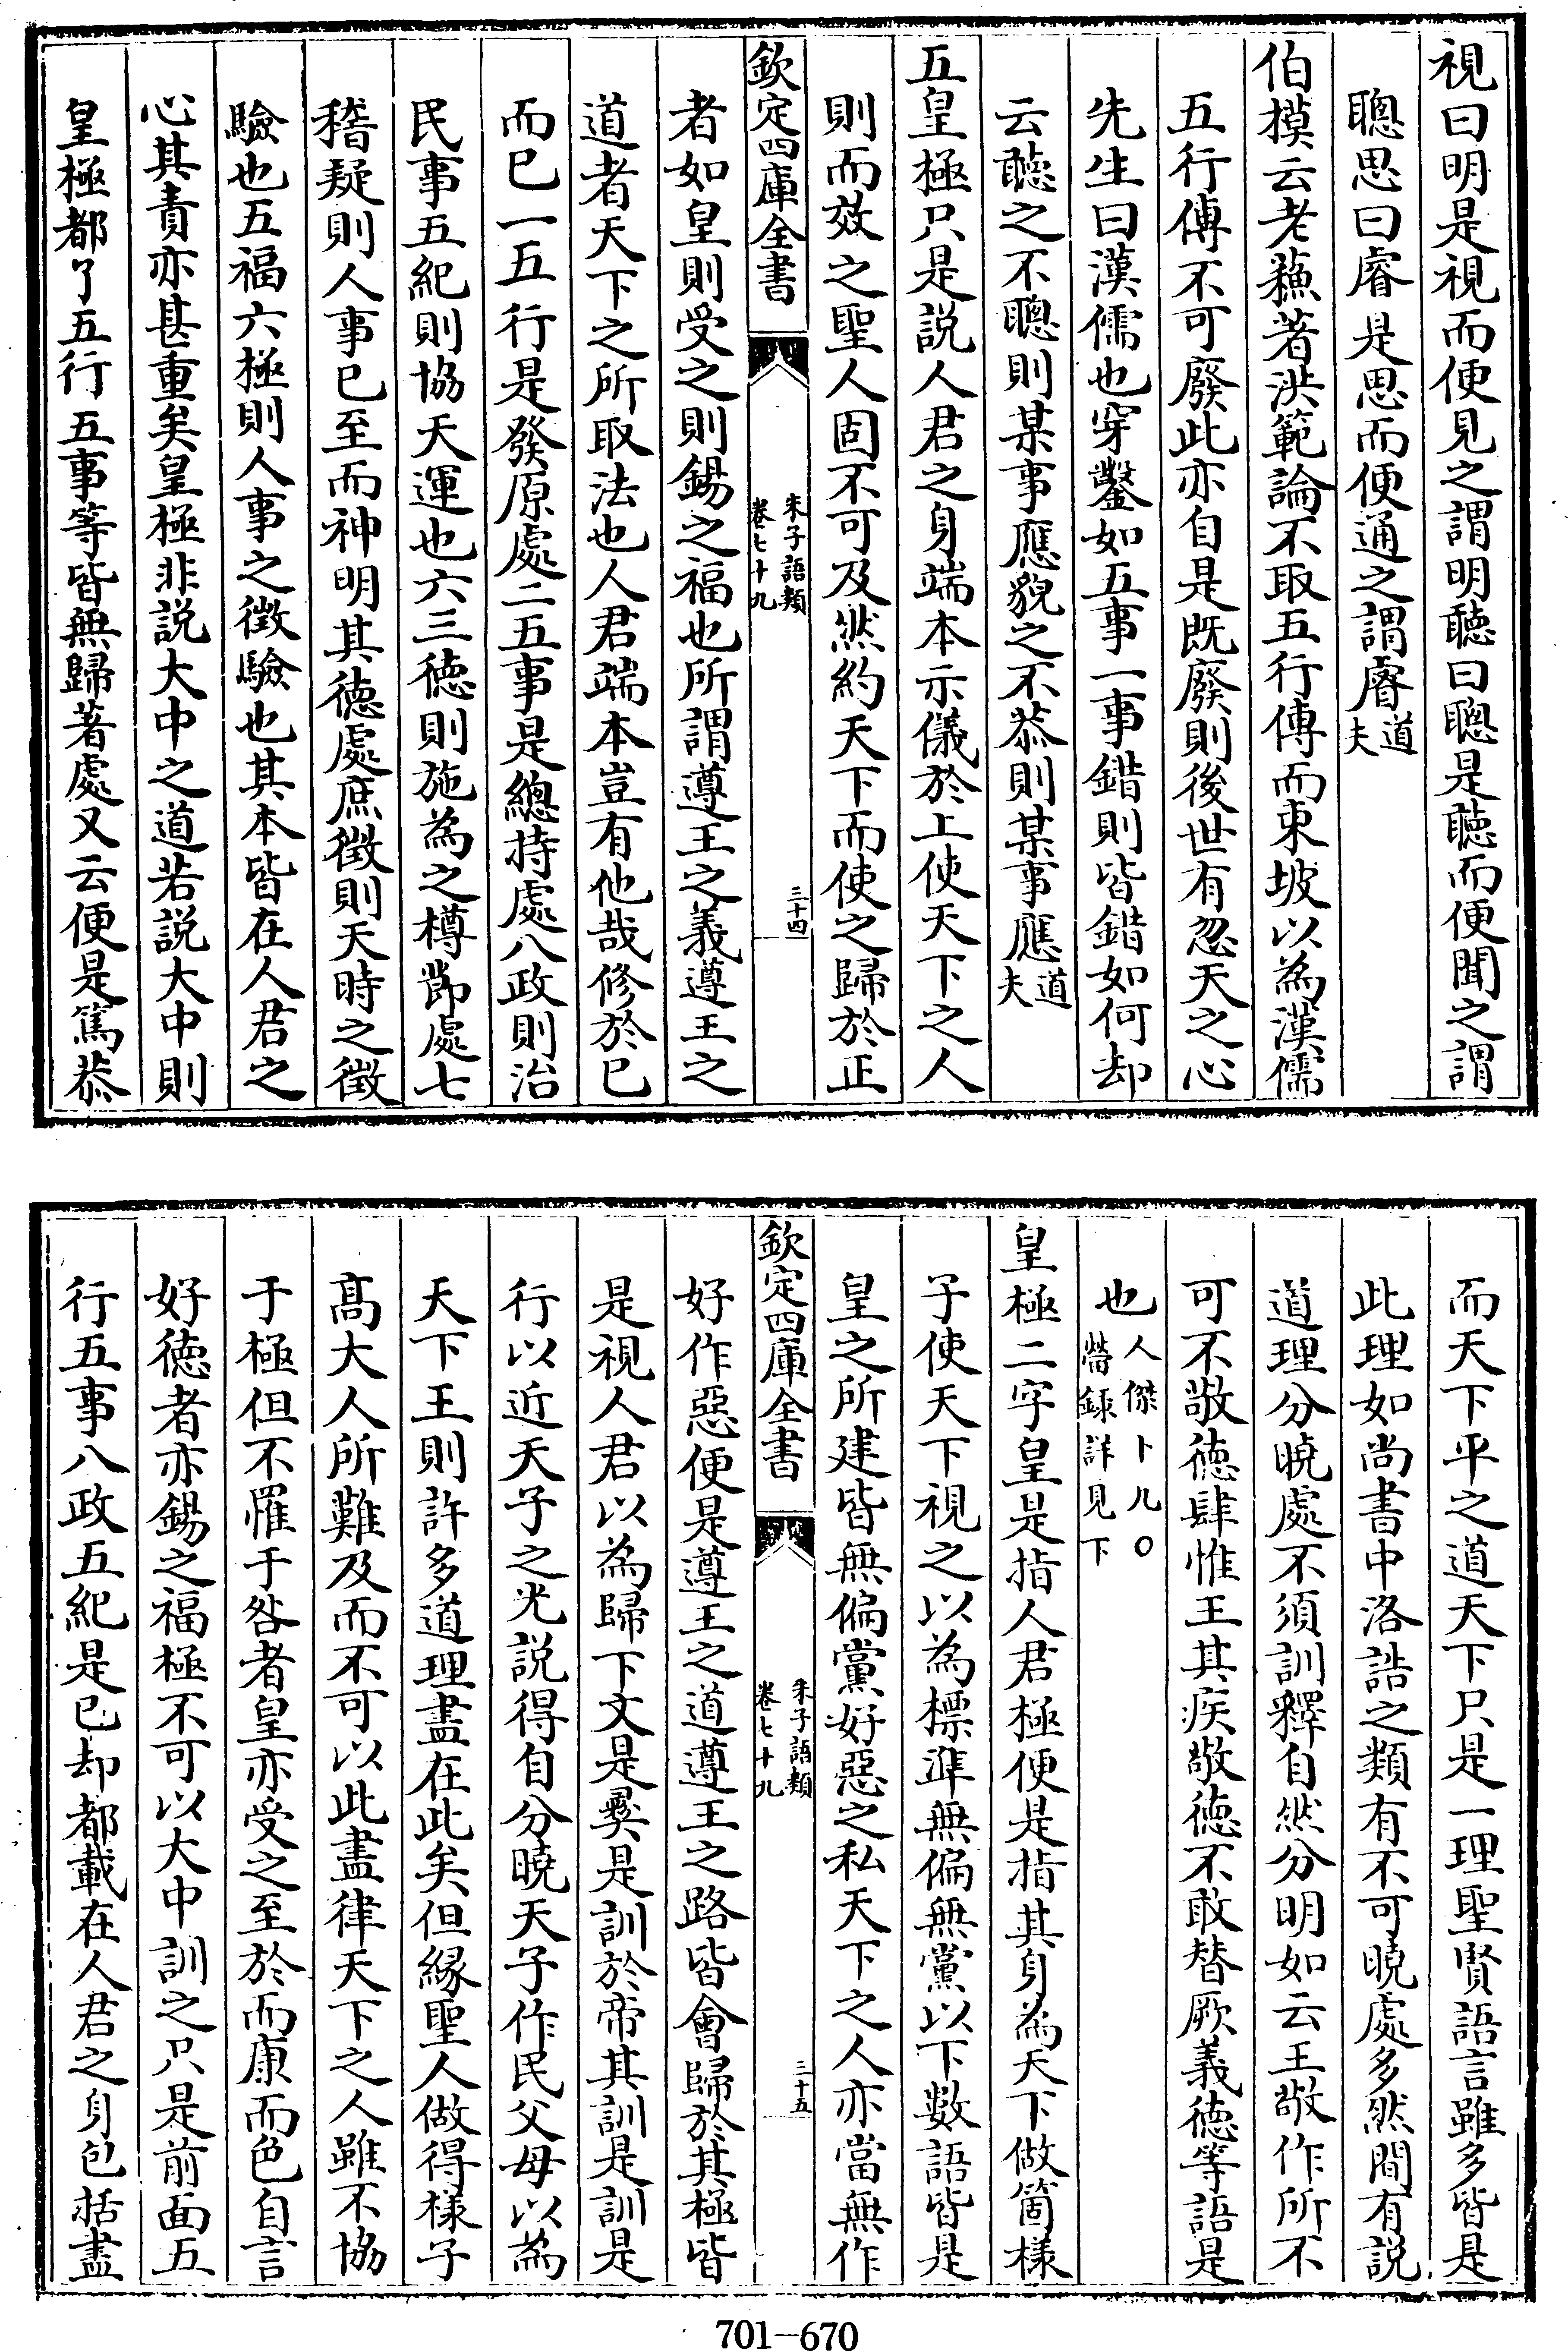 視曰明是視而便見之謂明聽曰聰是聽而便聞之謂
聰思曰睿是思而便通之謂睿道夫
伯模云老蘇著洪範論不取五行傳而東坡以為漢儒
五行傳不可廢此亦自是既廢則後世有忽天之心
先生曰漢儒也穿鑿如五事一事錯則皆錯如何却
云聽之不聰則某事應貌之不恭則某事應道夫
五皇極只是説人君之身端本示儀於上使天下之人
則而效之聖人固不可及然約天下而使之歸於正
欽定四庫全書
朱子語類
卷七十九
三十四
者如皇則受之則錫之福也所謂遵王之義遵王之
道者天下之所取法也人君端本豈有他哉修於已
而已一五行是發原處二五事是總持處八政則治
民事五紀則協天運也六三徳則施為之樽莭處七
稽疑則人事已至而神明其徳處庶徴則天時之徴
驗也五福六極則人事之徴驗也其本皆在人君之
心其責亦甚重矣皇極非説大中之道若説大中則
皇極都了五行五事等皆無歸著處又云便是篤恭
而天下平之道天下只是一理聖賢語言雖多皆是
此理如尚書中洛誥之類有不可曉處多然間有説
道理分曉處不須訓釋自然分明如云王敬作所不
可不敬徳肆惟王其疾敬徳不敢替厥義徳等語是
也人傑卜九○
㽦録詳見下
皇極二字皇是指人君極便是指其身為天下做箇樣
子使天下視之以為標準無偏無黨以下數語皆是
皇之所建皆無偏黨好惡之私天下之人亦當無作
欽定四庫全書
朱子語類
卷七十九
三十五
好作惡便是遵王之道遵王之路皆會歸於其極皆
是視人君以為歸下文是彛是訓於帝其訓是訓是
行以近天子之光説得自分曉天子作民父母以為
天下王則許多道理盡在此矣但縁聖人做得樣子
髙大人所難及而不可以此盡律天下之人雖不協
于極但不罹于咎者皇亦受之至於而康而色自言
好徳者亦錫之福極不可以大中訓之只是前面五
行五事八政五紀是已却都載在人君之身包括盡
701-670